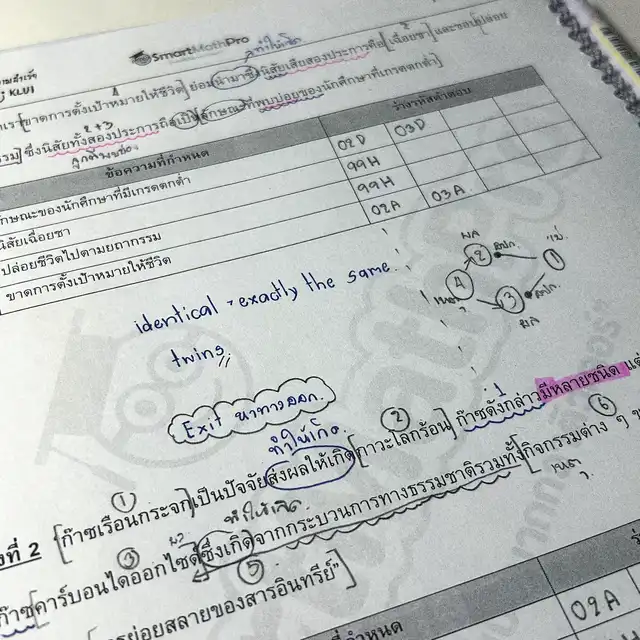 SmartMathPro
ทำให้เกิด
[ขาดการตั้งเป้าหมายให้ชีวิต] ย่อมนำมาซึ่งนิสัยเสียสองประการคือ [เฉื่อยชา] และชอบ[ปล่อย
2+3
ซึ่งนิสัยทั้งสองประการถือเป็น[ลักษณะที่พบบ่อยของนักศึกษาที่เกรดตกต่ำ]
ข้อความที่กำหนด ร่างรหัสคำตอบ
ลักษณะของนักศึกษาที่มีเกรดตกต่ำ 02D 03D
นิสัยเฉื่อยชา 99H
ปล่อยชีวิตไปตามยถากรรม 99H
ขาดการตั้งเป้าหมายให้ชีวิต 02A 03A
ผล 2 1
4 3
ผล
identical = exactly the same.
twins
Exit ทางออก.
ทำให้เกิด 2 6
1
ที่ 2 [ก๊าซเรือนกระจก]เป็นปัจจัยส่งผลให้เกิด[ภาวะโลกร้อน] ก๊าซดังกล่าวมีหลายชนิด
3 ทำให้เกิด
ก๊าซคาร์บอนไดออกไซด์ซึ่งเกิดจากกระบวนการทางธรรมชาติรวมทั้ง[กิจกรรมต่าง ๆ
5 เหตุ
ย่อยสลายของสารอินทรีย์"]
02A